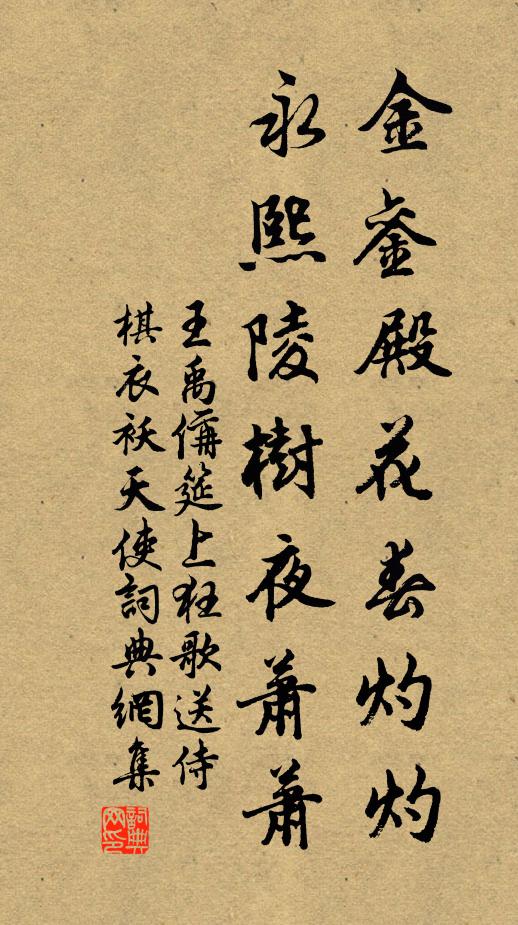 金銮殿花春灼灼
永熙陵樹夜蕭蕭
王禹偁筵上狂歌送侍
棋衣袄天使詞典網集
詞典网印